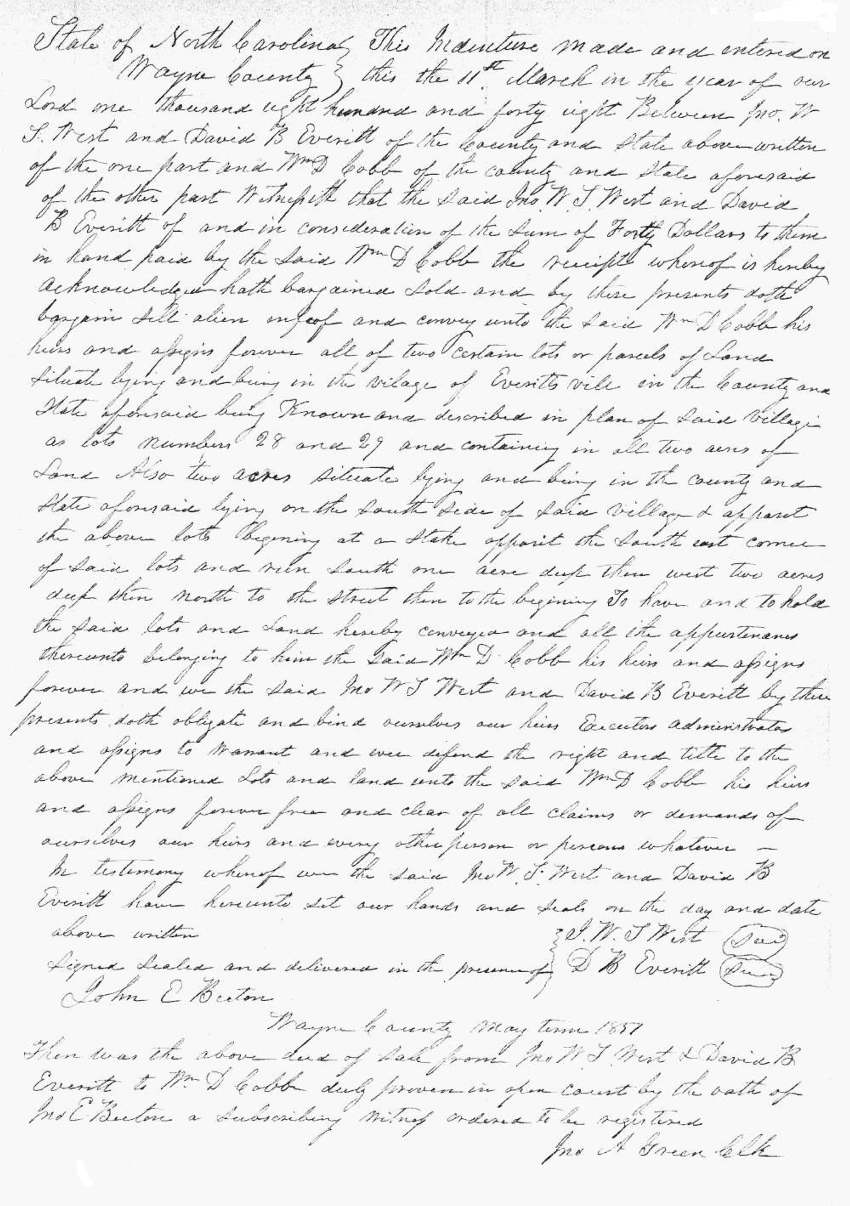 State of North Carolina } This Indenture made and entered on
Wayne County } this the 11st. March in the year of our
Lord one thousand eight hundred and forty eight Between Jno. W
S. West and David B Everitt of the County and State above written
of the one part and Wm D Cobb of the county and State aforesaid
of the other part Witnesseth that the said Jno. W. S. West and David
B Everitt of and in consideration of the Sum of Forty Dollars to them
in hand paid by the Said Wm D Cobb the receipte whereof is hereby
acknowledged hath bargained Sold and by these presents doth
bargain Sell alien infeof and convey unto the Said Wm D Cobb his
heirs and assigns forever all of two certain lots or parcels of Land
Situate lying and being in the village of Everittsvill in the County and
State aforesaid being Known and described in plan of Said Village
as lots numbers 28 and 29 and containing in all two acres of
Land Also two acres Situate lying and being in the county and
State aforesaid lying on the South Side of Said village & apposet
the above lots begening at a Stake apposit the South east corner
of Said lots and run South one acre deep then west two acres
deep then north to the street then to the begining To have and to hold
the Said lots and Land hereby conveyed and all the appurtenances
thereunto belonging to him the Said Wm D Cobb his heirs and assigns
forever and we the Said Jno W S West and David B Everitt by these
presents doth obligate and bind ourselves our heirs Executors administrators
and assigns to warrant and ever defend the right and title to the
above mentioned Lots and land unto the Said Wm D Cobb his heirs
and assigns forever free and clear of all claims or demands of
ourselves our heirs and every other person or persons whatever –
In testimony whereof we the said Jno W. S. West and David B
Everitt have hereunto Set our hands and Seals on the day and date
above written } J. W. S West (Seal)
Signed Sealed and delivered in the presence of } D B Everitt (Seal)
John E Becton
Wayne County May term 1851
Then was the above deed of Sale from Jno W. S. West & David B
Everitt to Wm. D Cobb duly proven in open court by the oath of
Jno E Becton a Subscribing witness ordered to be registered
Jno A Green Clk